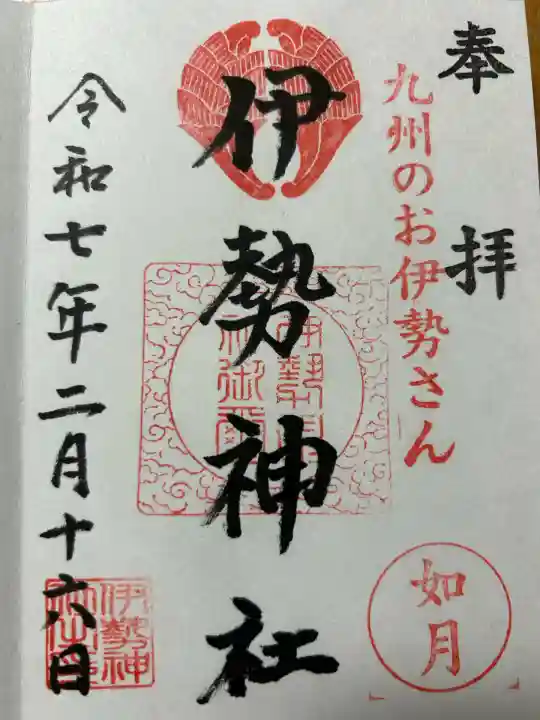 奉拝
九州のお伊勢さん
如月
伊勢神社
令和七年二月十六日
伊勢神